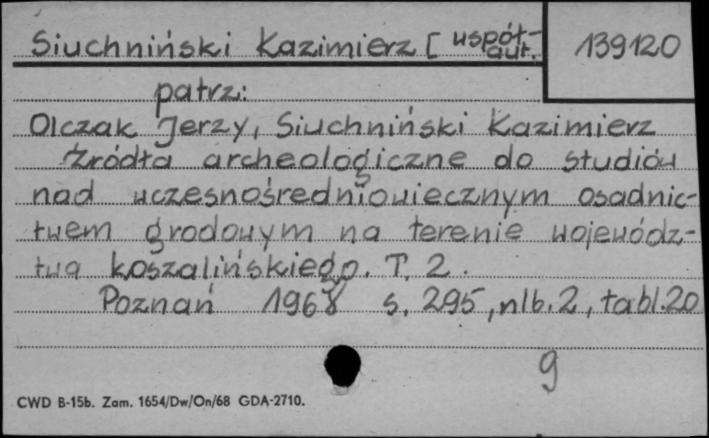 Siuchniński Kazimierz [współ-
aut.
139120
patrz:
Olczak Jerzy, Siuchniński Kazimierz
Źródła archeologiczne do studiów
nad wczesnośredniowiecznym osadnic-
twem grodowym na terenie wojewódz-
twa koszalińskiego. T. 2.
Poznań 1968 s. 295, nlb. 2, tabl. 20
g
CWD B-15b. Zam. 1654/Dw/On/68 GDA-2710.